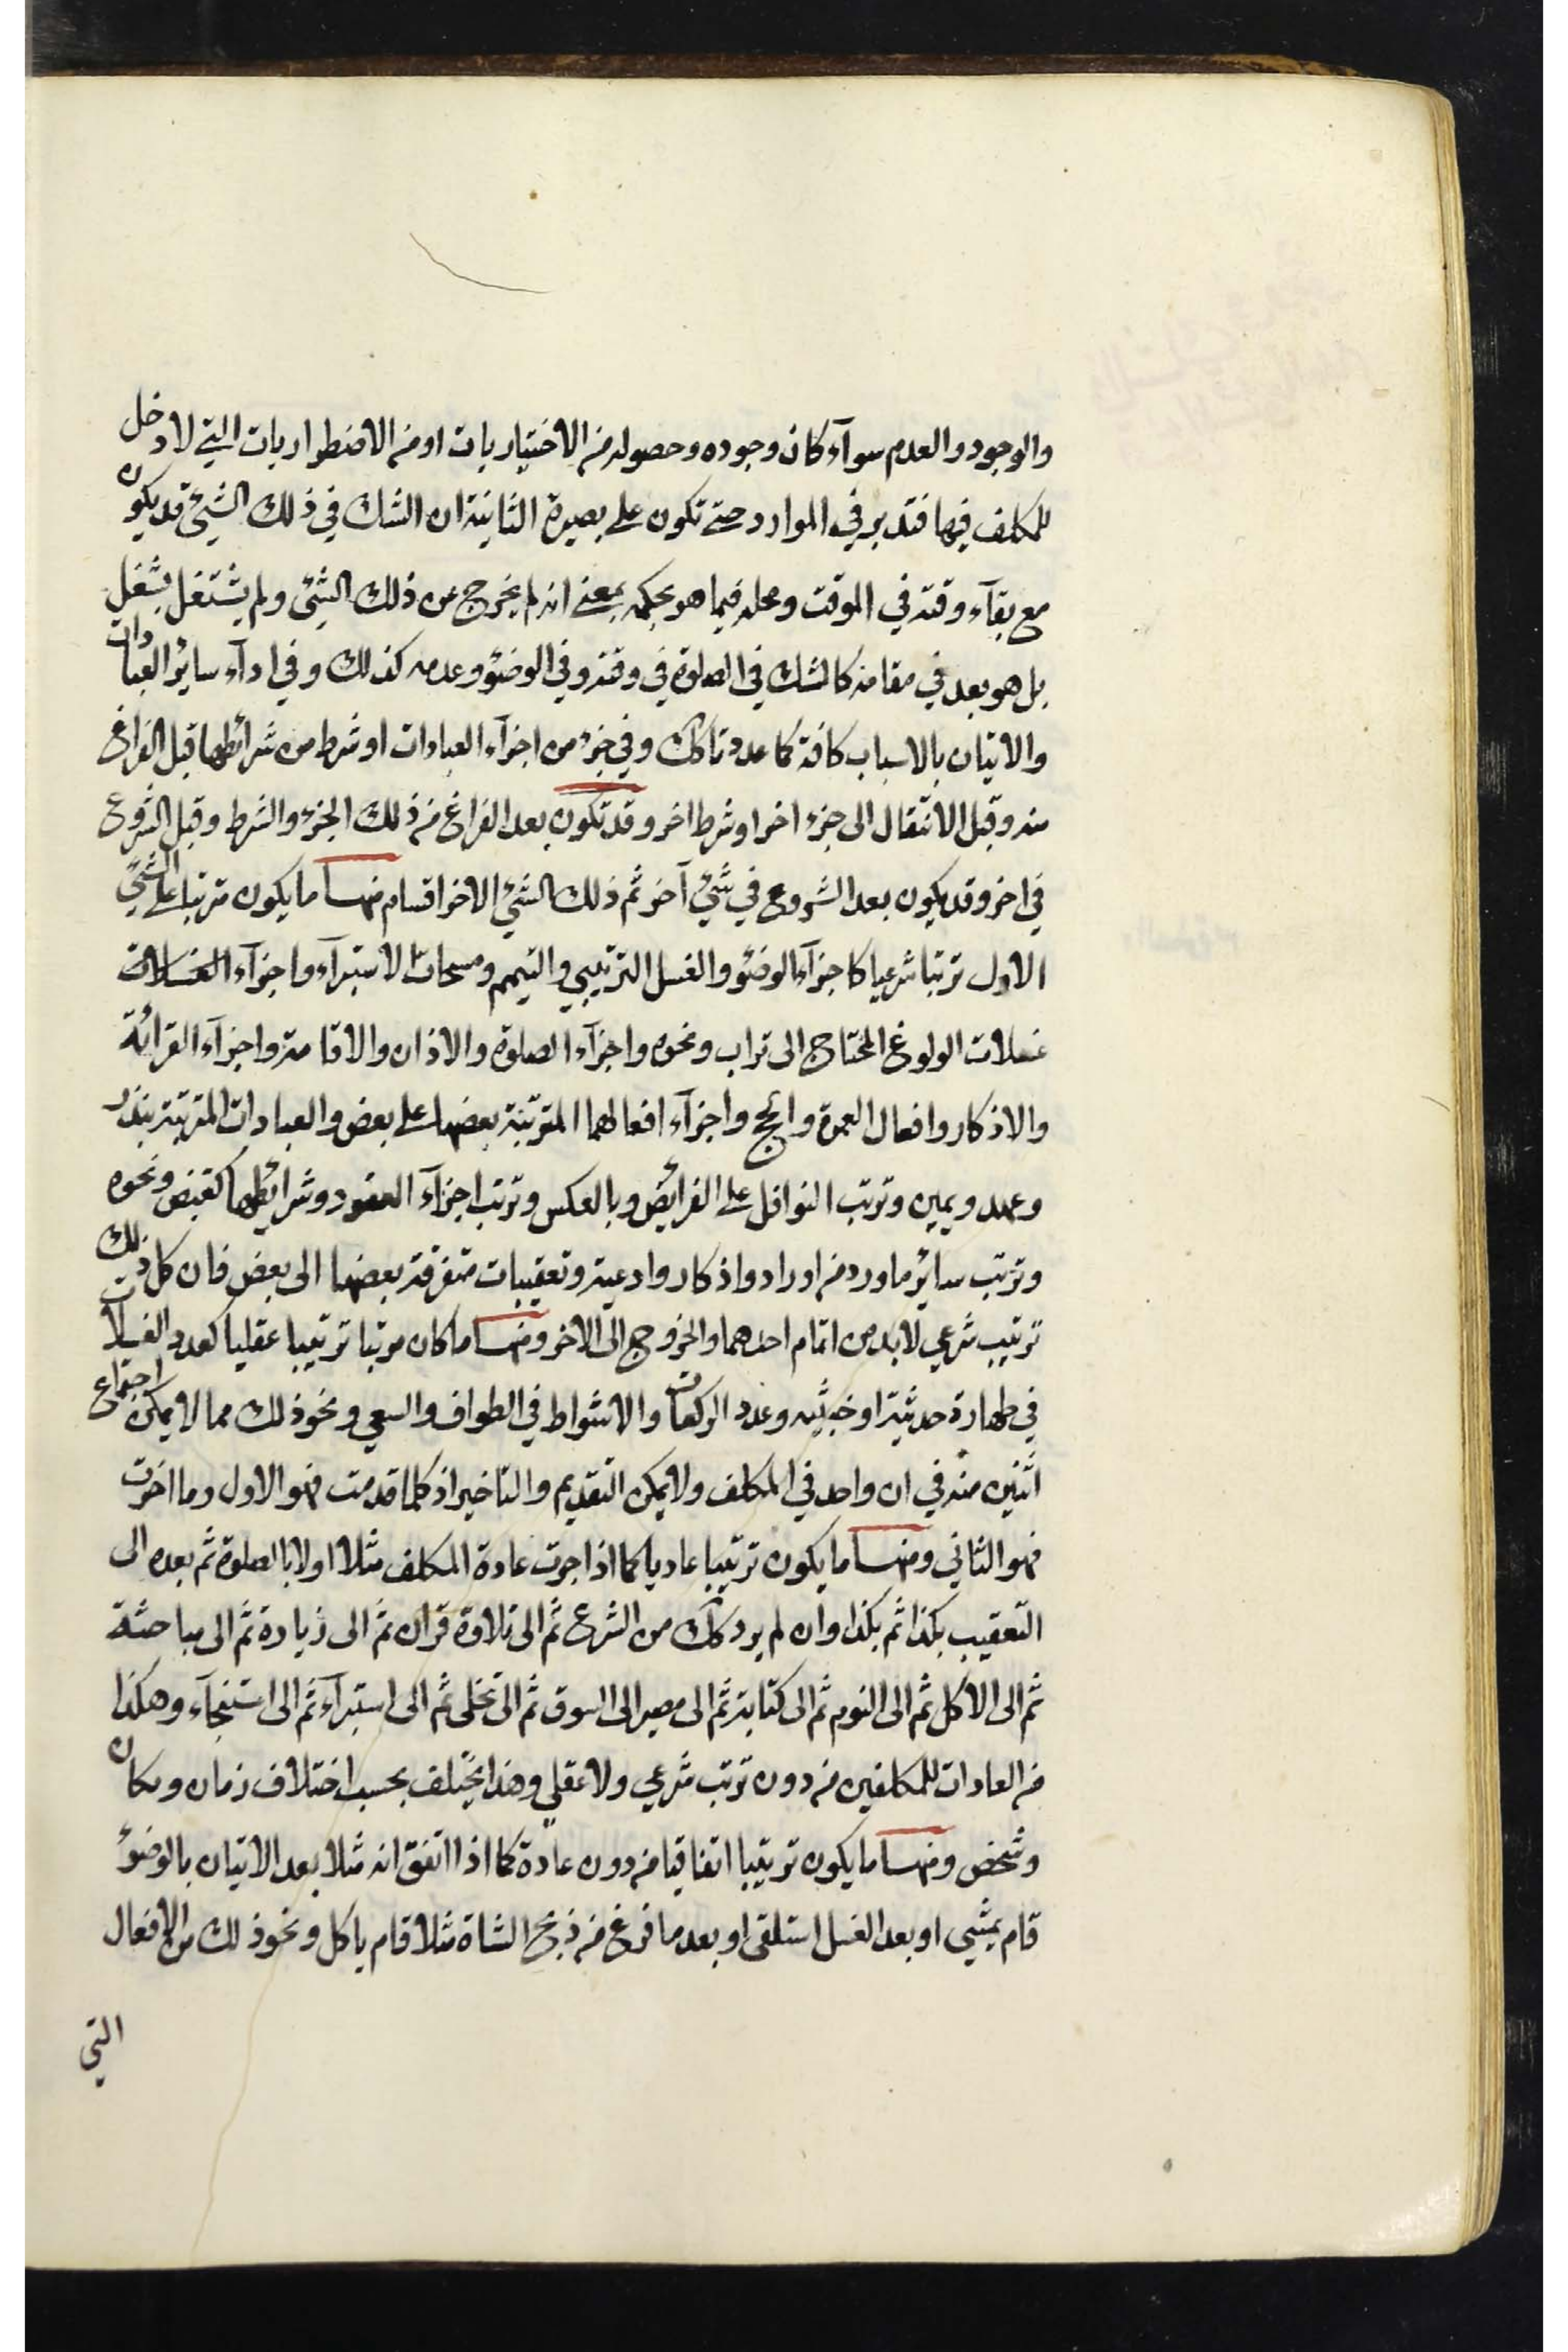 والوجود والعدم سوآء كان وجوده وحصوله من الاختياريات او من الاضطراريات التي لا دخل
للمكلف فيها فتدبر في الموارد حتى تكون على بصيرة الثانية ان الشك في ذلك الشيئ قد يكون
مع بقآء وقته في الموقت ومحله فيما هو بحكمه بمعنى انه لم يخرج عن ذلك الشيئ ولم يشتغل بشغل
بل هو بعد في مقامه كالشك في الصلوة في وقته وفي الوضوء وعدمه كذلك وفي ادآء سائر العبادات
والاتيان بالاسباب كافة كما عددناك وفي جزء من اجزآء العبادات او شرط من شرائطها قبل الفراغ
منه وقبل الانتقال الى جزء اخر او شرط اخر وقد تكون بعد الفراغ من ذلك الجزء والشرط وقبل الشروع
في اخر وقد يكون بعد الشروع في شيئ آخر ثم ذلك الشيئ الاخر اقسام منها ما يكون مرتبا على الشيئ
الاول ترتبا شرعيا كاجزآء الوضوء والغسل الترتيبي والتيمم ومسحات الاستبرآء واجزآء الغسلات
غسلات الولوغ المحتاج الى تراب ونحوه واجزآء الصلوة والاذان والاقامة واجزآء القرائة
والاذكار وافعال العمرة والحج واجزآء افعالهما المترتبة بعضها على بعض والعبادات المترتبة بنذر
وعهد ويمين وترتب النوافل على الفرايض وبالعكس وترتب اجزآء العقود وشرائطها كقبض ونحوه
وترتب سائر ما ورد من اوراد واذكار وادعية وتعقيبات متفرقة بعضها الى بعض فان كل ذلك
ترتيب شرعي لابد من اتمام احدهما والخروج الى الاخر ومنها ما كان مرتبا ترتيبا عقليا كعدد الغسلات
في طهارة حدثية او خبثية وعدد الركعات والاشواط في الطواف والسعي ونحو ذلك مما لا يمكن اجتماع
اثنين منه في ان واحد في المكلف ولا يمكن التقديم والتاخير اذ كلما قدمت فهو الاول وما اخرت
فهو الثاني ومنها ما يكون ترتيبا عاديا كما اذا جرت عادة المكلف مثلا اولا بالصلوة ثم بعده الى
التعقيب بكذا ثم بكذا وان لم يرد كك من الشرع ثم الى تلاوة قران ثم الى زيادة ثم الى مباحثة
ثم الى الاكل ثم الى النوم ثم الى كتابة ثم الى مصير الى السوق ثم الى تخلي ثم الى استبرآء ثم الى استنجآء وهكذا
من العادات للمكلفين من دون ترتب شرعي ولا عقلي وهذا يختلف بحسب اختلاف زمان ومكان
وشخص ومنها ما يكون ترتيبا اتفاقيا من دون عادة كما اذا اتفق انه مثلا بعد الاتيان بالوضوء
قام يمشي او بعد الغسل استلقى او بعد ما فرغ من ذبح الشاة مثلا قام ياكل ونحو ذلك من الافعال
التي